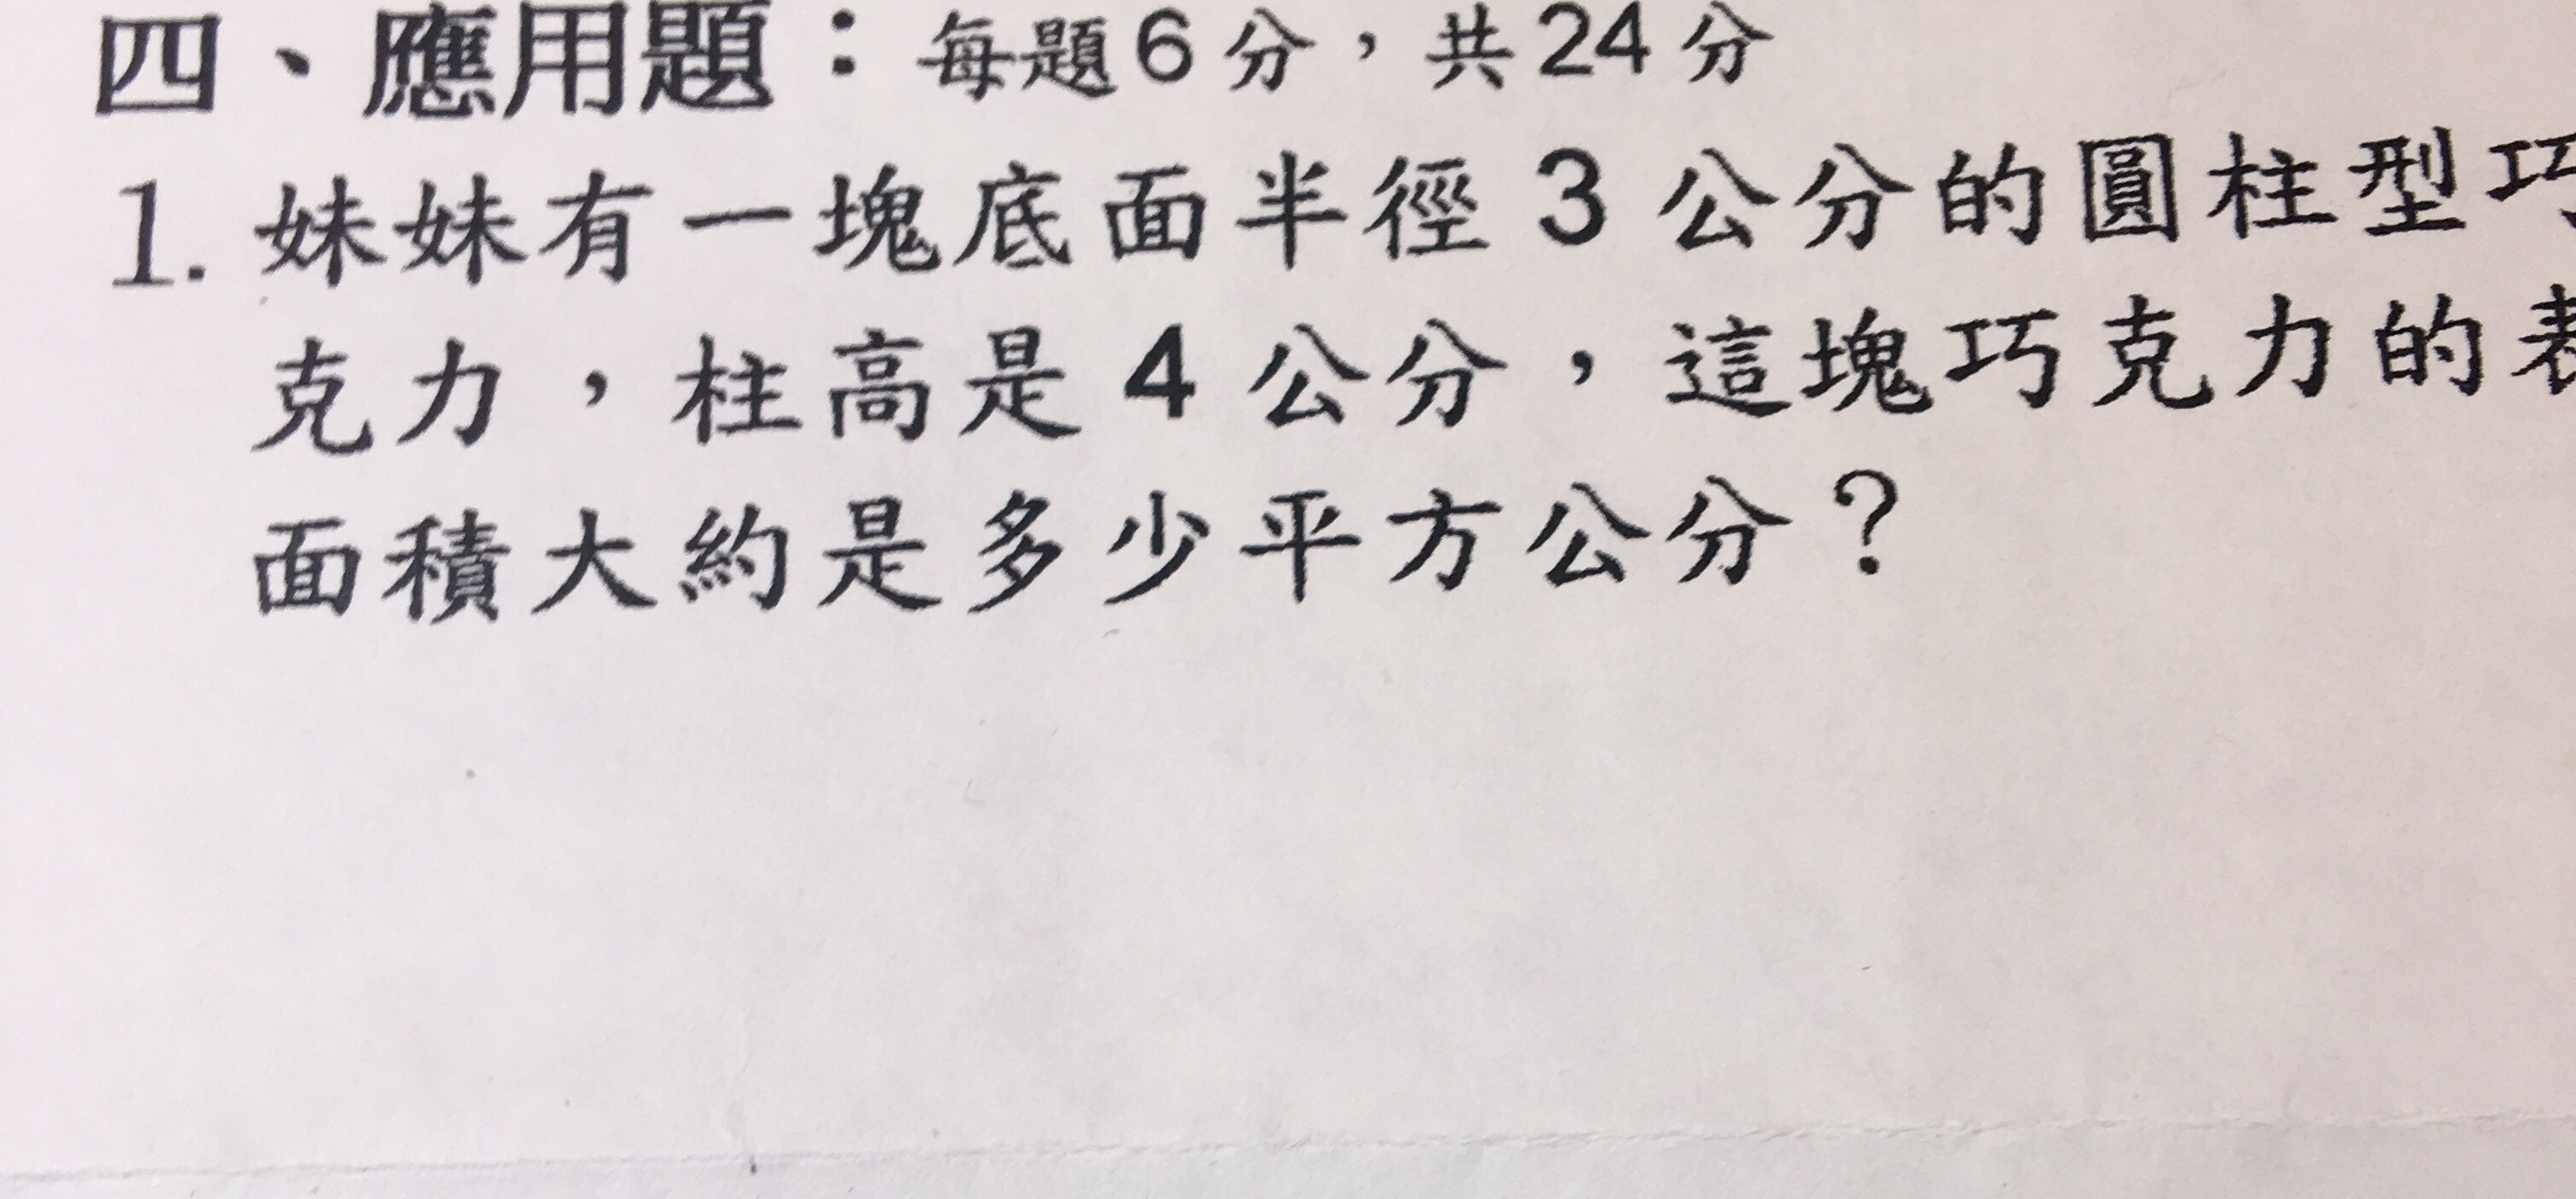 四、應用題：每題6分，共24分
1. 妹妹有一塊底面半徑3公分的圓柱型巧
克力，柱高是4公分，這塊巧克力的表
面積大約是多少平方公分？